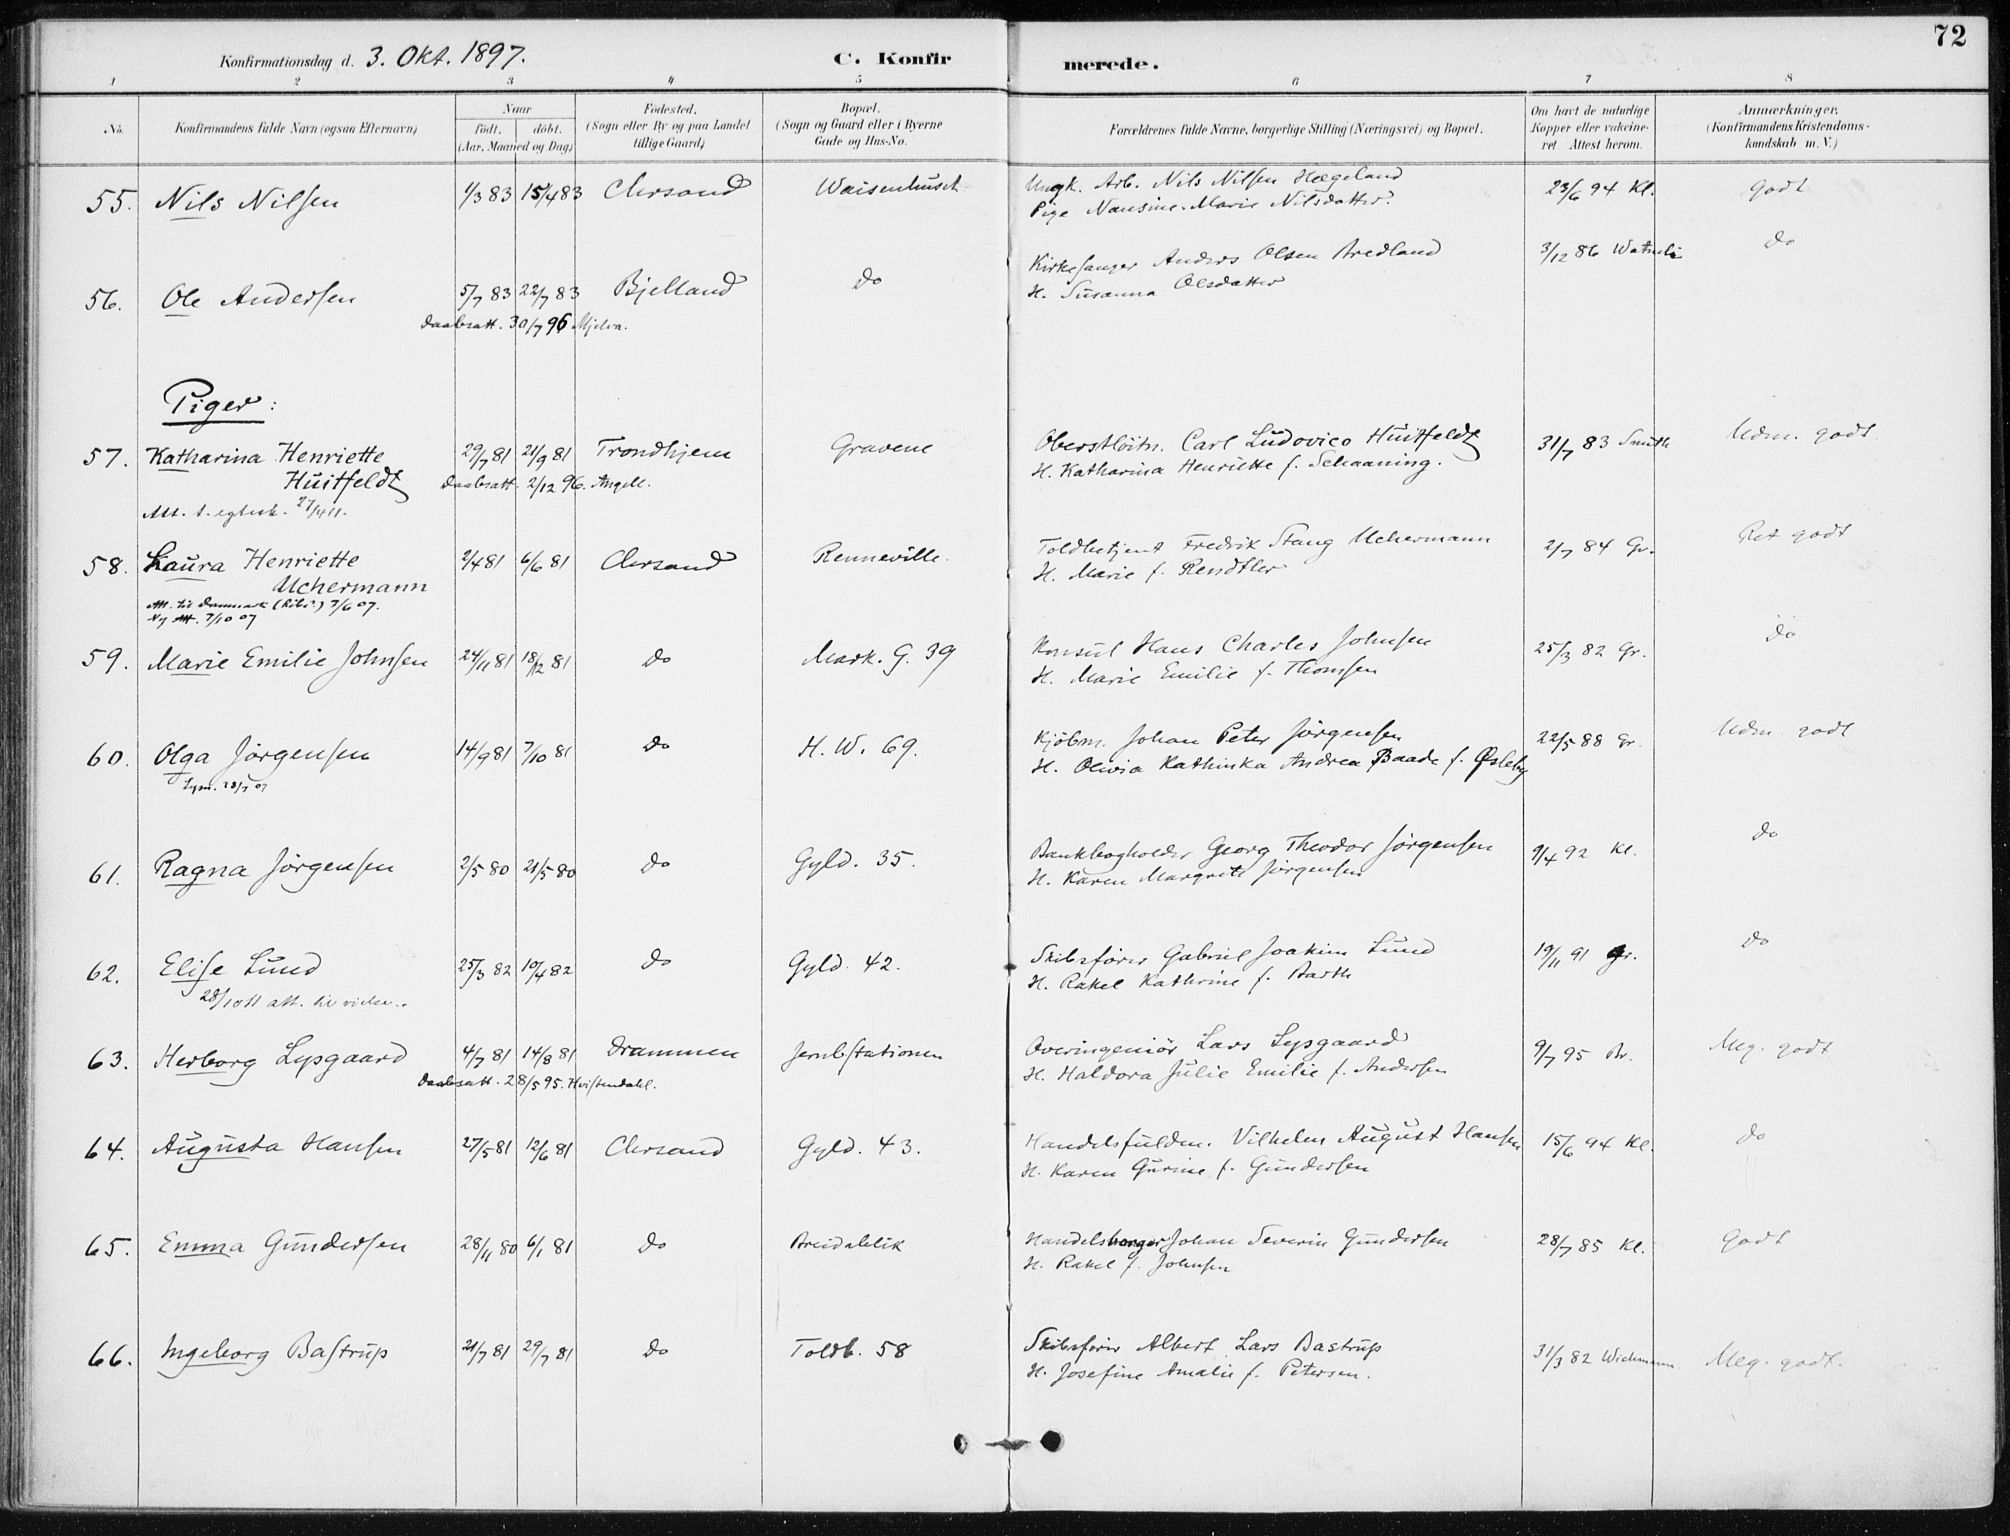 72
Konfirmationsdag d. 3. Okt. 1897. C. Konfirmerede.
1 2 3 4 5 6 7 8
No. Konfirmandens fulde Navn (ogsaa Efternavn) Naar født. døbt. (Aar, Maaned og Dag) Fødested. (Sogn eller By og paa Landet tillige Gaard) Bopæl. (Sogn og Gaard eller i Byerne Gade og Hus-No. Forældrenes fulde Navne, borgerlige Stilling (Næringsvei) og Bopæl. Om havt de naturlige Kopper eller vakcineret Attest herom. Anmærkninger. (Konfirmandens Kristendomskundskab m. V.)
55. Nils Nilsen 1/3 83 15/4 83 Chrsand Waisenhuset Ungk. Arb. Nils Nilsen Hægeland 23/6 94 Kl. godt
Pige Nansine Marie Nilsdatter.
56. Ole Andersen 5/7 83 22/7 83 Bjelland do Kirkesanger Anders Olsen Bredland 3/12 86 do
H. Susanna Olsdatter
Daabsatt. 30/7 96 Mjelva.
Piger:
57. Katharina Henriette 29/7 81 21/9 81 Trondhjem Gravene Oberstløitn. Carl Ludovico Huitfeldt 31/7 83 Smith Udm. godt
Huitfeldt Daabsatt. 2/12 96. Angell. H. Katharina Henriette f. Schaaning.
Att. t. egtesk. 27/4 11.
58. Laura Henriette 2/4 81 6/6 81 Chrsand Renneville. Toldbetjent Fredrik Stang Uchermann 2/7 84 Gr. Ret godt
Uchermann H. Marie f. Rendtler
Att. til Danmark (Ribe) 7/6 07.
Ny Att. 7/10 07
59. Marie Emilie Johnsen 24/11 81 18/12 81 do Mark. G. 39 Konsul Hans Charles Johnsen 25/3 82 Gr. do
H. Marie Emilie f. Thomsen
60. Olga Jørgensen 14/9 81 7/10 81 do H. W. 69. Kjøbm. Johan Peter Jørgensen 22/5 88 Gr. Udm. godt
H. Olivia Kathinka Andrea Baade f. Øsleby
61. Ragna Jørgensen 2/5 80 21/5 80 do Gyld. 35. Bankbogholder Georg Theodor Jørgensen 9/4 92 Kl. do
H. Karen Margrete Jørgensen
62. Elise Lund 25/3 82 10/4 82 do Gyld. 42. Skibsfører Gabriel Joakim Lund 19/11 91 Gr. do
28/10 11 att. til H. Rakel Kathrine f. Barth
63. Herborg Lysgaard 4/7 81 14/8 81 Drammen Jernbstationen Overingeniør Lars Lysgaard 9/7 95 Br. Meg. godt
Daabsatt. 28/5 95. Hvistendahl. H. Haldora Julie Emilie f. Andersen
64. Augusta Hansen 27/5 81 12/6 81 Chrsand Gyld. 43. Handelsfuldm. Vilhelm August Hansen 15/6 94 Kl. do
H. Karen Gurine f. Gundersen
65. Emma Gundersen 28/11 80 6/1 81 do Handelsborger Johan Severin Gundersen 28/7 85 Kl. godt
H. Rakel f. Johnsen
66. Ingeborg Bastrup 21/7 81 29/7 81 do Toldb. 58 Skibsfører Albert Lars Bastrup 31/3 82 Wichmann Meg. godt.
H. Josefine Amalie f. Petersen.